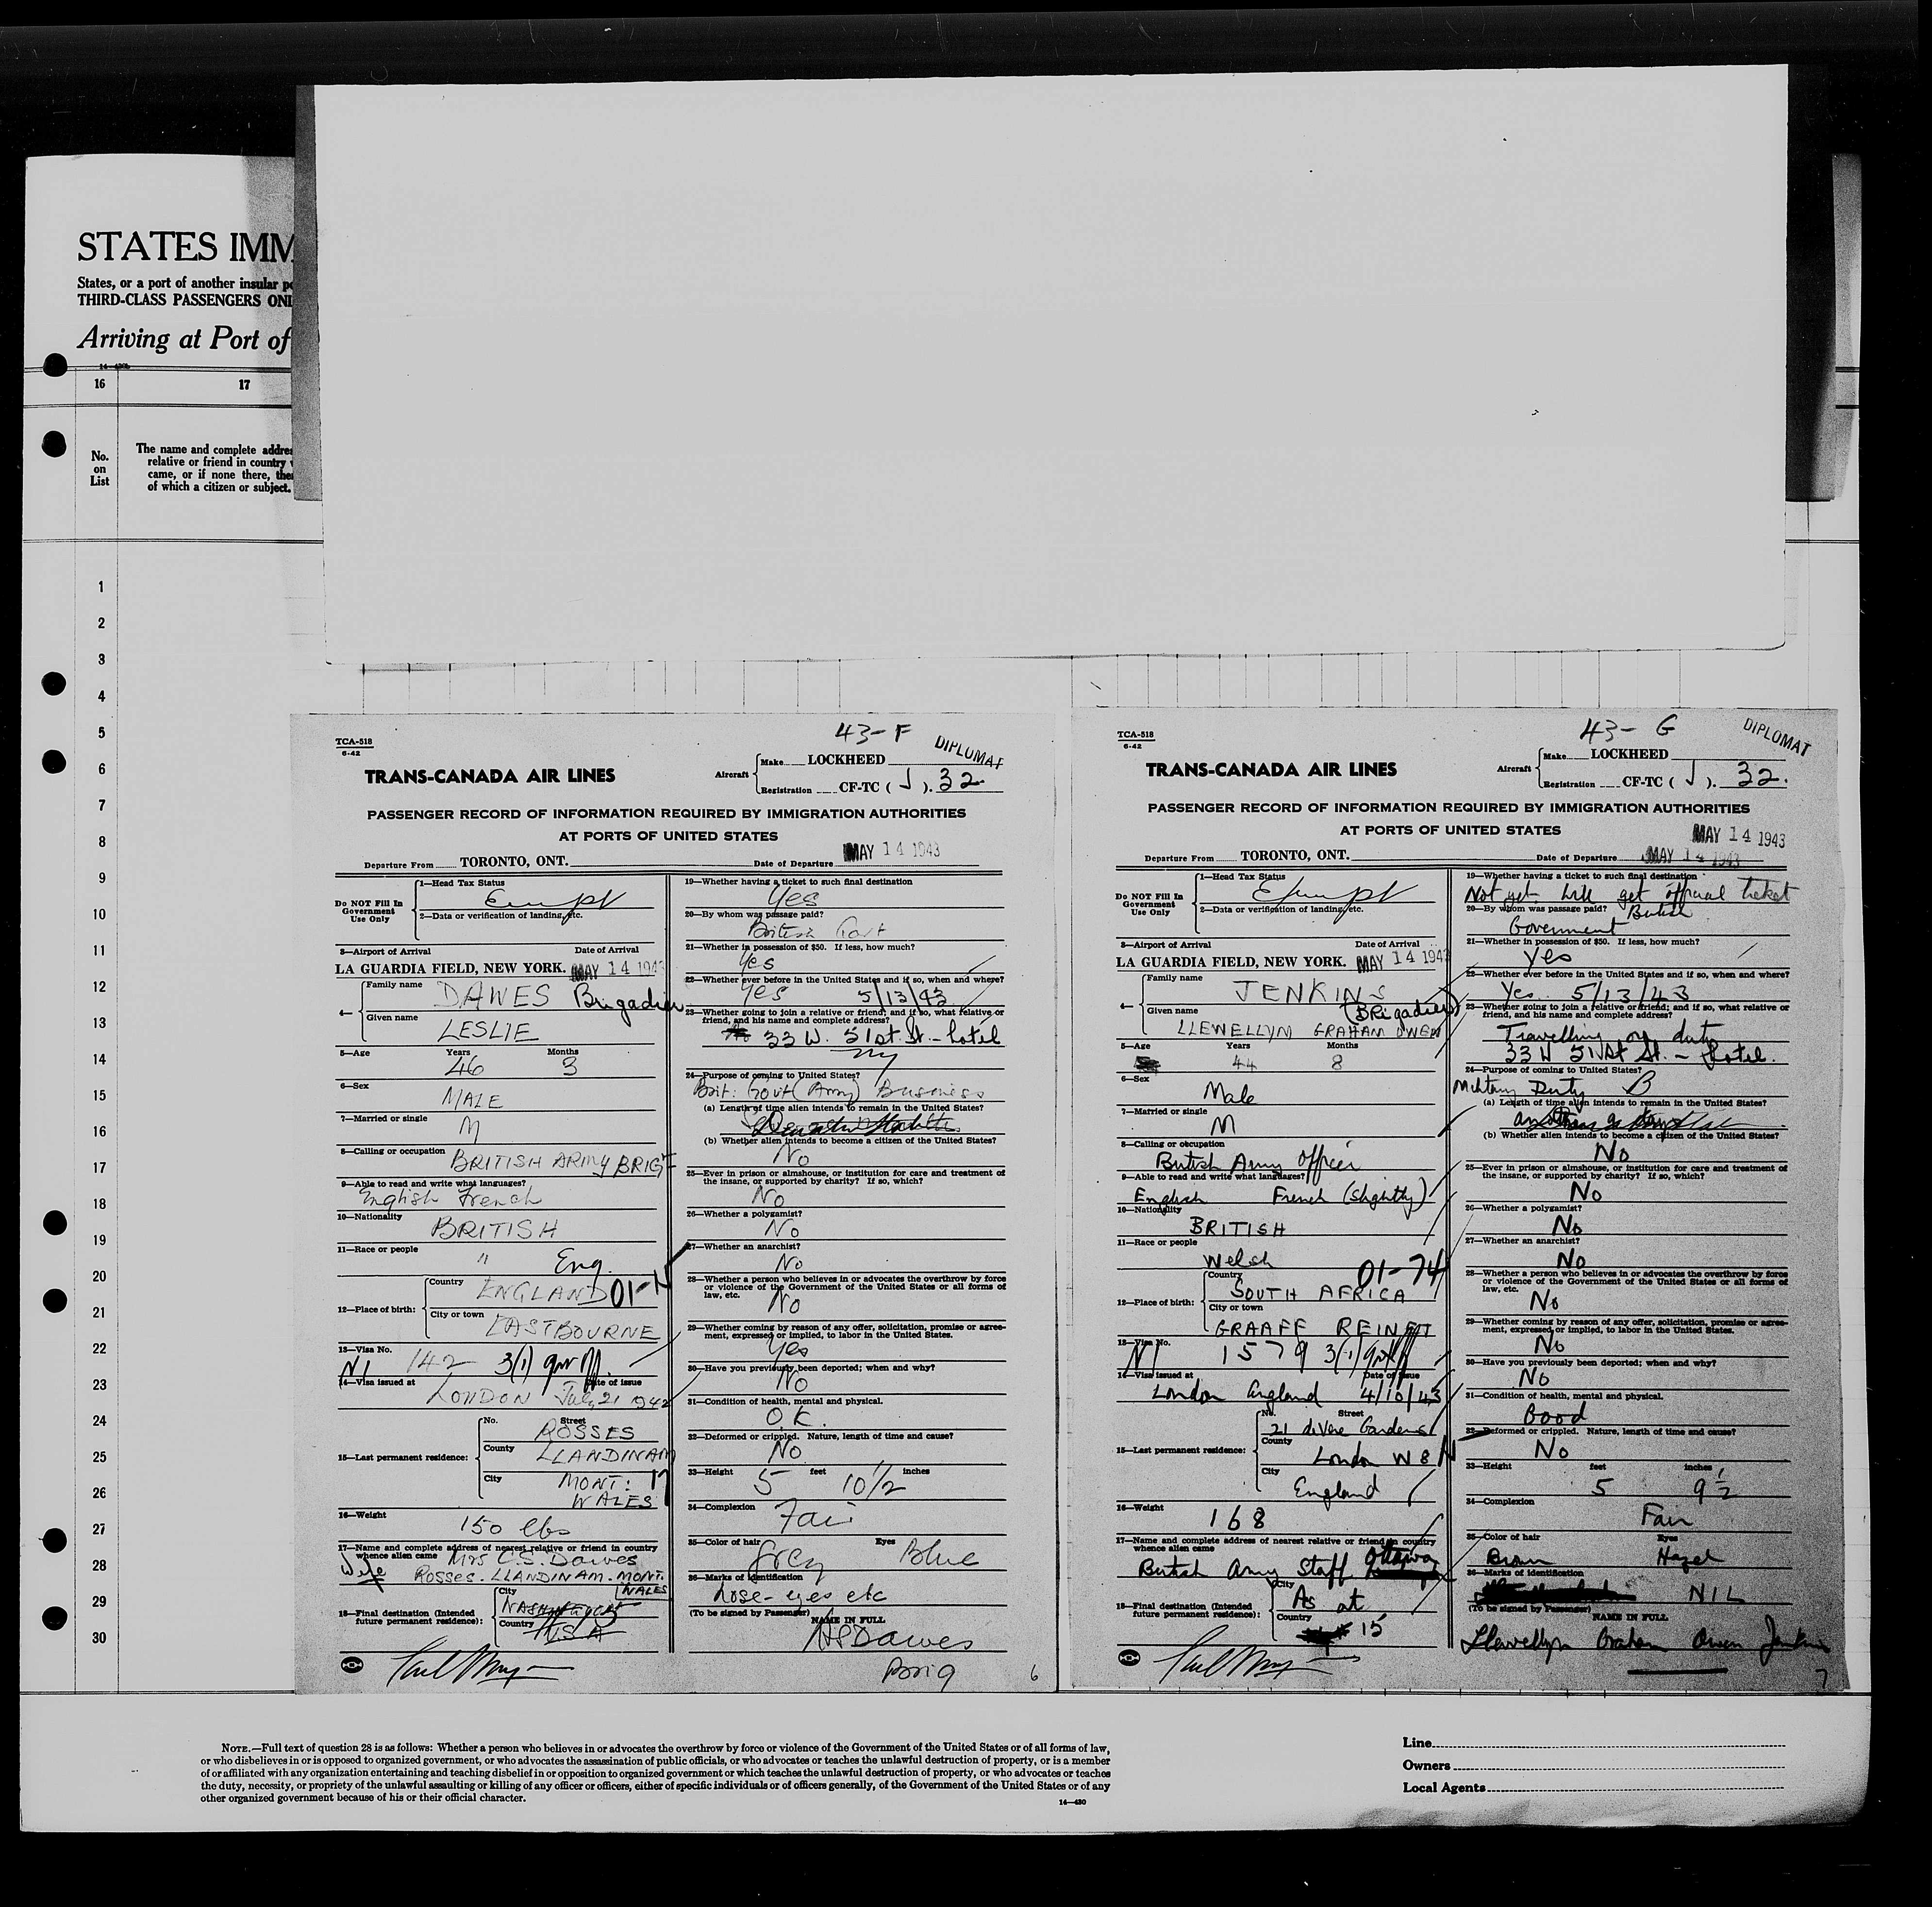 STATES IMM
States, or a port of another insular po
THIRD-CLASS PASSENGERS ONL
Arriving at Port of
16 17
No.
on
List
The name and complete addres
relative or friend in country
came, or if none there, the
of which a citizen or subject.
1
2
3
4
5
6
7
8
9
10
11
12
13
14
15
16
17
18
19
20
21
22
23
24
25
26
27
28
29
30
43-F
DIPLOMAT
TCA-518
6-42
TRANS-CANADA AIR LINES
Aircraft
Make LOCKHEED
Registration CF-TC ( J ). 32
PASSENGER RECORD OF INFORMATION REQUIRED BY IMMIGRATION AUTHORITIES
AT PORTS OF UNITED STATES
Departure From TORONTO, ONT. Date of Departure MAY 14 1943
Do NOT Fill In
Government
Use Only
1—Head Tax Status
2—Data or verification of landing, etc.
3—Airport of Arrival Date of Arrival
LA GUARDIA FIELD, NEW YORK. MAY 14 1943
4—
Family name DAWES Brigadier
Given name LESLIE
5—Age Years Months
46 3
6—Sex
MALE
7—Married or single
M
8—Calling or occupation BRITISH ARMY BRIG
9—Able to read and write what languages?
English French
10—Nationality
BRITISH
11—Race or people
" Eng.
12—Place of birth:
Country
ENGLAND 01-
City or town
EASTBOURNE
13—Visa No.
142 3(1)
14—Visa issued at Date of issue
LONDON July 21 1942
15—Last permanent residence:
No. Street
ROSSES
County
LLANDINAM
City
MONT:
WALES
16—Weight
150 lbs
17—Name and complete address of nearest relative or friend in country
whence alien came Mrs C.S. Dawes
Wife ROSSES. LLANDINAM. MONT.
WALES
18—Final destination (Intended
future permanent residence):
City
Country
USA
19—Whether having a ticket to such final destination
Yes
20—By whom was passage paid?
British Govt
21—Whether in possession of $50. If less, how much?
Yes
22—Whether ever before in the United States and if so, when and where?
Yes 5/13/43
23—Whether going to join a relative or friend; and if so, what relative or
friend, and his name and complete address?
33 W. 51st. St. - hotel
NY
24—Purpose of coming to United States?
Brit: Govt (Army) Business
(a) Length of time alien intends to remain in the United States?
(b) Whether alien intends to become a citizen of the United States?
No
25—Ever in prison or almshouse, or institution for care and treatment of
the insane, or supported by charity? If so, which?
No
26—Whether a polygamist?
No
27—Whether an anarchist?
No
28—Whether a person who believes in or advocates the overthrow by force
or violence of the Government of the United States or all forms of
law, etc.
No
29—Whether coming by reason of any offer, solicitation, promise or agree-
ment, expressed or implied, to labor in the United States.
Yes
30—Have you previously been deported; when and why?
No
31—Condition of health, mental and physical.
O.K.
32—Deformed or crippled. Nature, length of time and cause?
No
33—Height feet inches
5 10 1/2
34—Complexion
Fair
35—Color of hair Eyes
Grey Blue
36—Marks of identification
nose - eyes etc
(To be signed by Passenger) NAME IN FULL
Dawes
Brig
6
43-G
DIPLOMAT
TCA-518
6-42
TRANS-CANADA AIR LINES
Aircraft
Make LOCKHEED
Registration CF-TC ( J ). 32.
PASSENGER RECORD OF INFORMATION REQUIRED BY IMMIGRATION AUTHORITIES
AT PORTS OF UNITED STATES
MAY 14 1943
Departure From TORONTO, ONT. Date of Departure MAY 14 1943
Do NOT Fill In
Government
Use Only
1—Head Tax Status
2—Data or verification of landing, etc.
3—Airport of Arrival Date of Arrival
LA GUARDIA FIELD, NEW YORK. MAY 14 1943
4—
Family name
JENKINS
Given name (BRigadier)
LLEWELLYN GRAHAM OWEN
5—Age Years Months
44 8
6—Sex
Male
7—Married or single
M
8—Calling or occupation
British Army Officer
9—Able to read and write what languages?
English French (slightly)
10—Nationality
BRITISH
11—Race or people
Welsh
12—Place of birth:
Country 01-74
SOUTH AFRICA
City or town
GRAAFF REINET
13—Visa No.
1579 3(1)
14—Visa issued at Date of Issue
London England 4/10/43
15—Last permanent residence:
No. Street
21 deVere Gardens
County
London W8
City
England
16—Weight
168
17—Name and complete address of nearest relative or friend in country
whence alien came
British Army Staff Ottawa
18—Final destination (Intended
future permanent residence):
City
As at
Country
15
19—Whether having a ticket to such final destination
Not yet. Will get official ticket
20—By whom was passage paid? British
Government
21—Whether in possession of $50. If less, how much?
Yes
22—Whether ever before in the United States and if so, when and where?
Yes. 5/13/43
23—Whether going to join a relative or friend; and if so, what relative or
friend, and his name and complete address?
Travelling on duty
33 W 51st St. - hotel.
24—Purpose of coming to United States?
Military Duty B
(a) Length of time alien intends to remain in the United States?
(b) Whether alien intends to become a citizen of the United States?
No
25—Ever in prison or almshouse, or institution for care and treatment of
the insane, or supported by charity? If so, which?
No
26—Whether a polygamist?
No
27—Whether an anarchist?
No
28—Whether a person who believes in or advocates the overthrow by force
or violence of the Government of the United States or all forms of
law, etc.
No
29—Whether coming by reason of any offer, solicitation, promise or agree-
ment, expressed or implied, to labor in the United States.
No
30—Have you previously been deported; when and why?
No
31—Condition of health, mental and physical.
Good
32—Deformed or crippled. Nature, length of time and cause?
No
33—Height feet inches
5 9 1/2
34—Complexion
Fair
35—Color of hair Eyes
Brown Hazel
36—Marks of identification
NIL
(To be signed by Passenger) NAME IN FULL
Llewellyn Graham Owen Jenkins
7
NOTE.—Full text of question 28 is as follows: Whether a person who believes in or advocates the overthrow by force or violence of the Government of the United States or of all forms of law,
or who disbelieves in or is opposed to organized government, or who advocates the assassination of public officials, or who advocates or teaches the unlawful destruction of property, or is a member
of or affiliated with any organization entertaining and teaching disbelief in or opposition to organized government or which teaches the unlawful destruction of property, or who advocates or teaches
the duty, necessity, or propriety of the unlawful assaulting or killing of any officer or officers, either of specific individuals or of officers generally, of the Government of the United States or of any
other organized government because of his or their official character.
14—430
Line
Owners
Local Agents